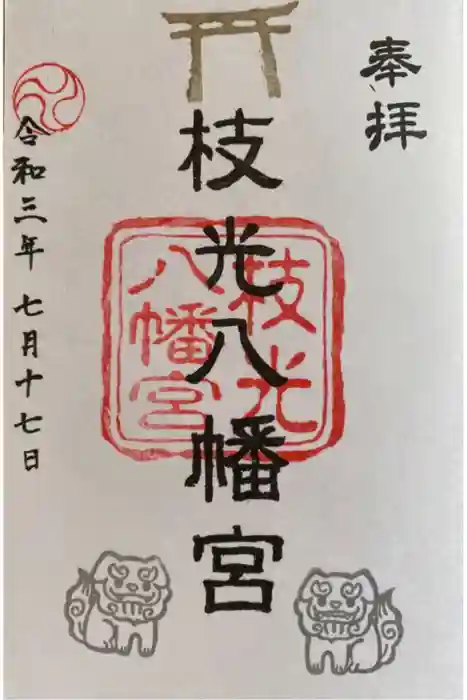 奉拝
枝光八幡宮
枝光
八幡宮
令和三年七月十七日